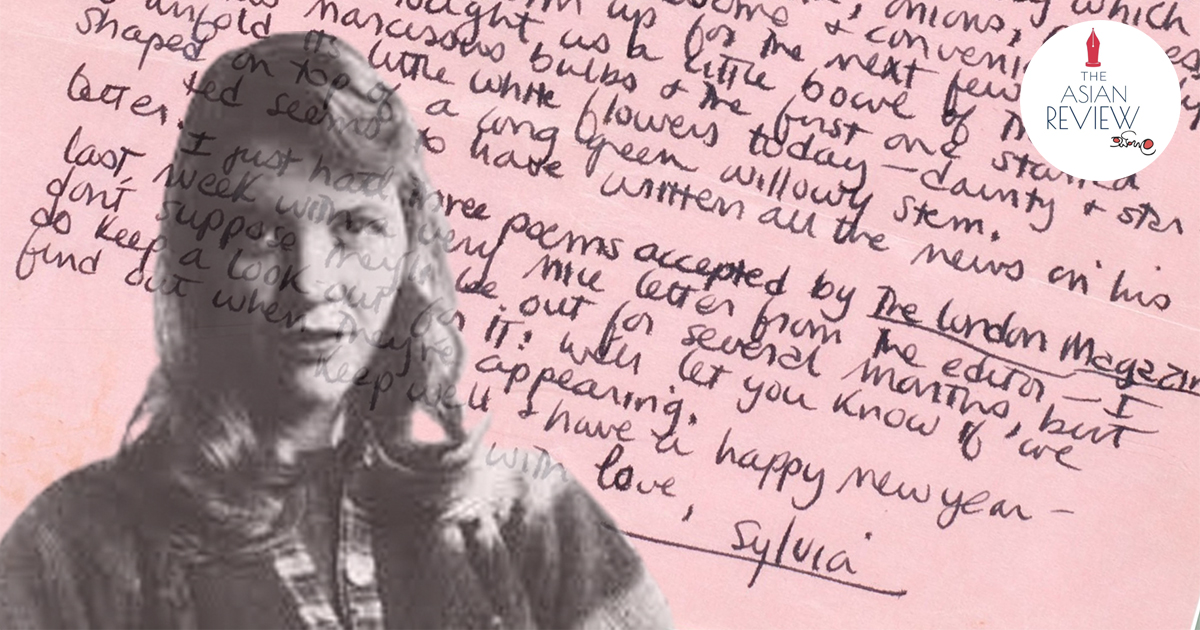 onions, which
some & conveni
up for the next few
us a little bowl of
narcissus bulbs & the first one started
unfold its little white flowers today — dainty & star
shaped on top of a long green willowy stem.
Ted seems to have written all the news on his
letter.
I just had three poems accepted by The London Magazin
last week with a very nice letter from the editor — I
don't suppose they'll be out for several months, but
do keep a look-out for it: will let you know if we
find out when they're appearing.
Keep well & have a happy new year —
with love,
Sylvia
THE
ASIAN
REVIEW